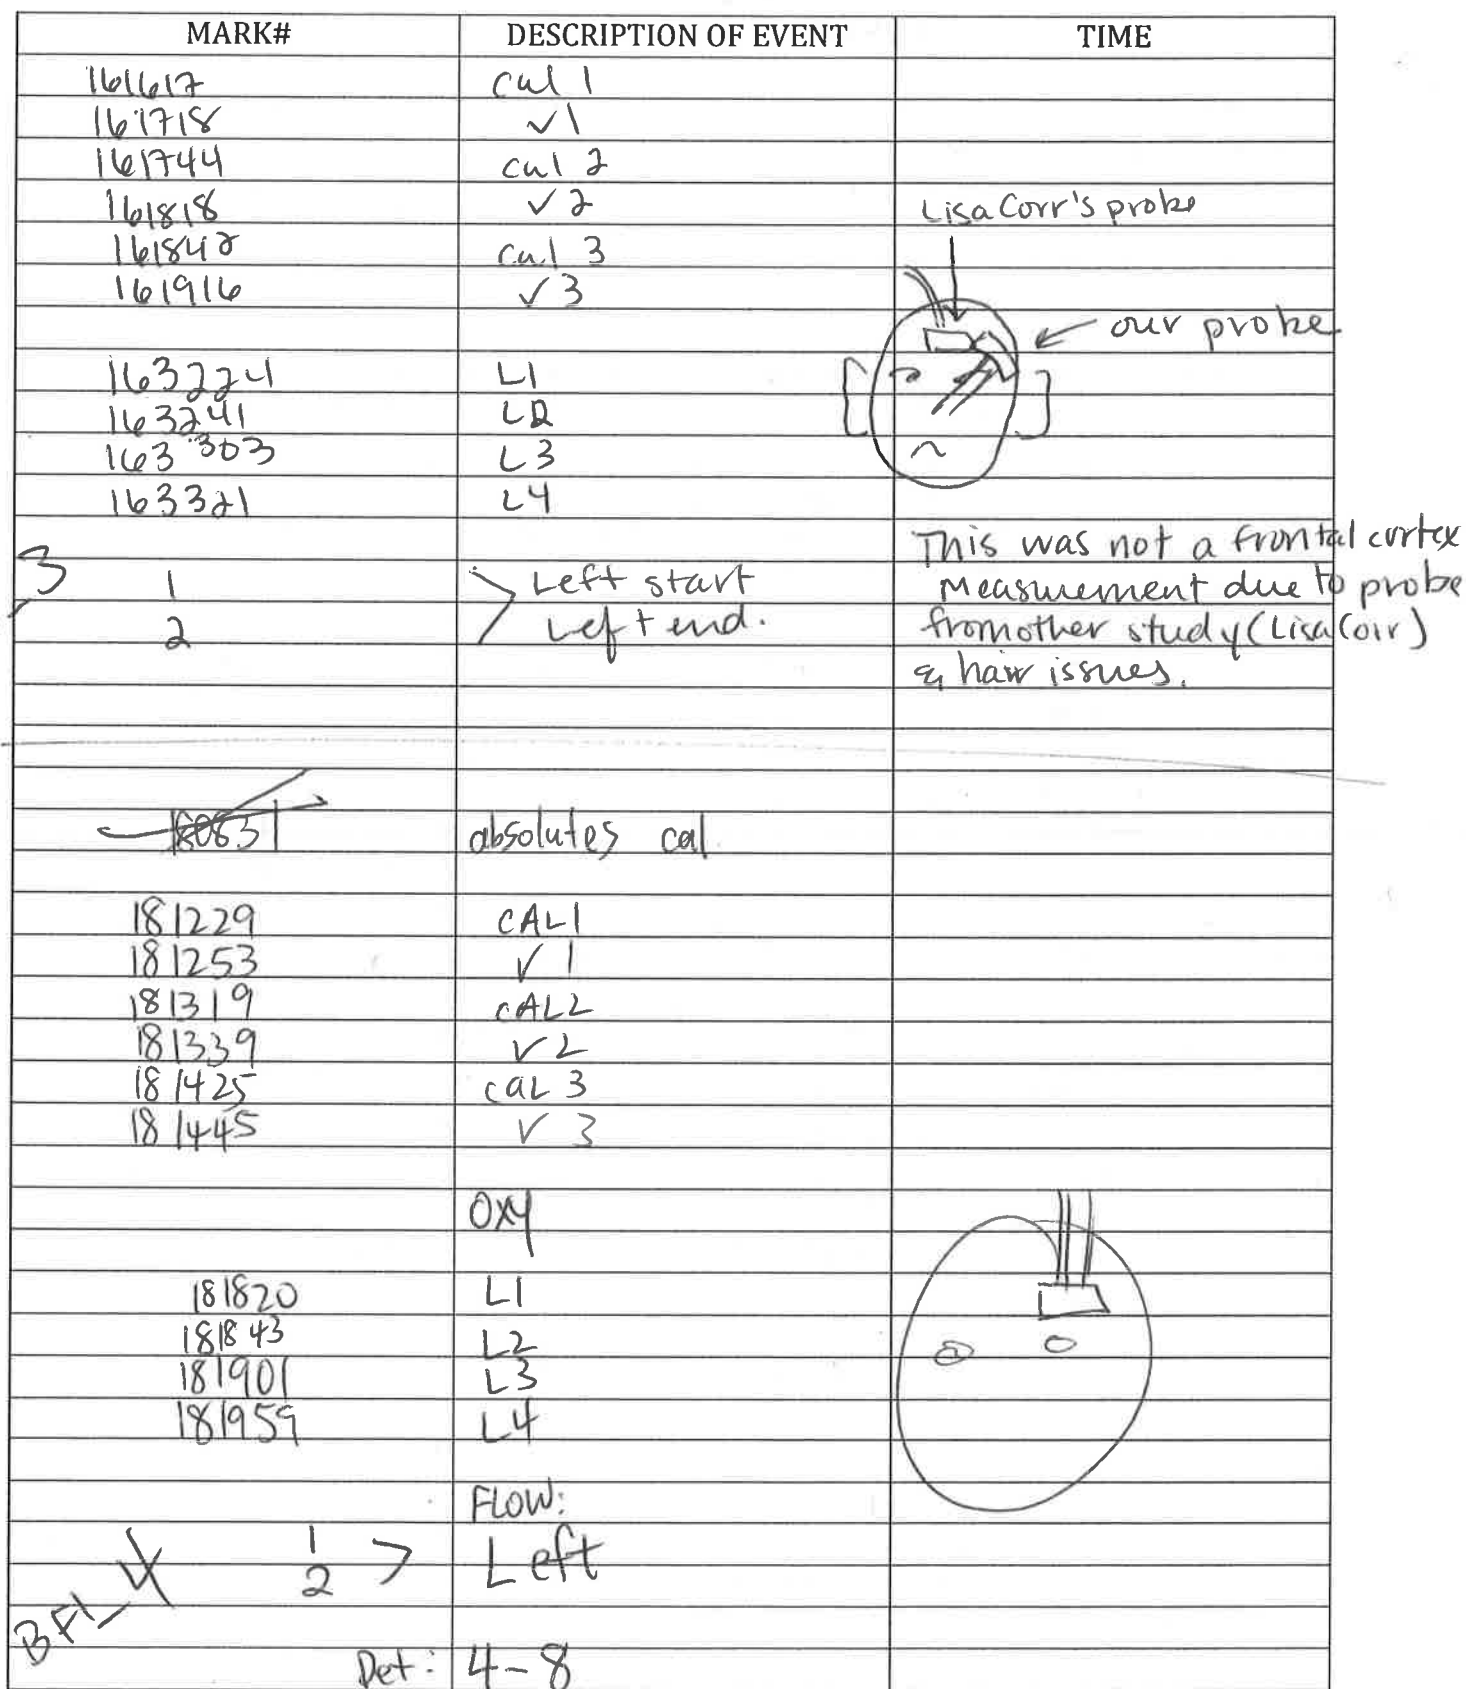 MARK# DESCRIPTION OF EVENT TIME
161617 cal 1
161718 ✓1
161744 cal 2
161818 ✓2 Lisa Corr's probe
161842 cal 3
161916 ✓3
our probe
163224 L1
163241 L2
163303 L3
163321 L4
This was not a frontal cortex
3 1 > Left start Measurement due to probe
2 Left end. from other study (Lisa Corr)
& hair issues.
18083 absolutes cal
181229 CAL1
181253 ✓ 1
181319 CAL2
181339 ✓ 2
181425 CAL 3
181445 ✓ 3
Oxy
181820 L1
181843 L2
181901 L3
181959 L4
FLOW:
BFI_4 1 2 > Left
Det: 4-8